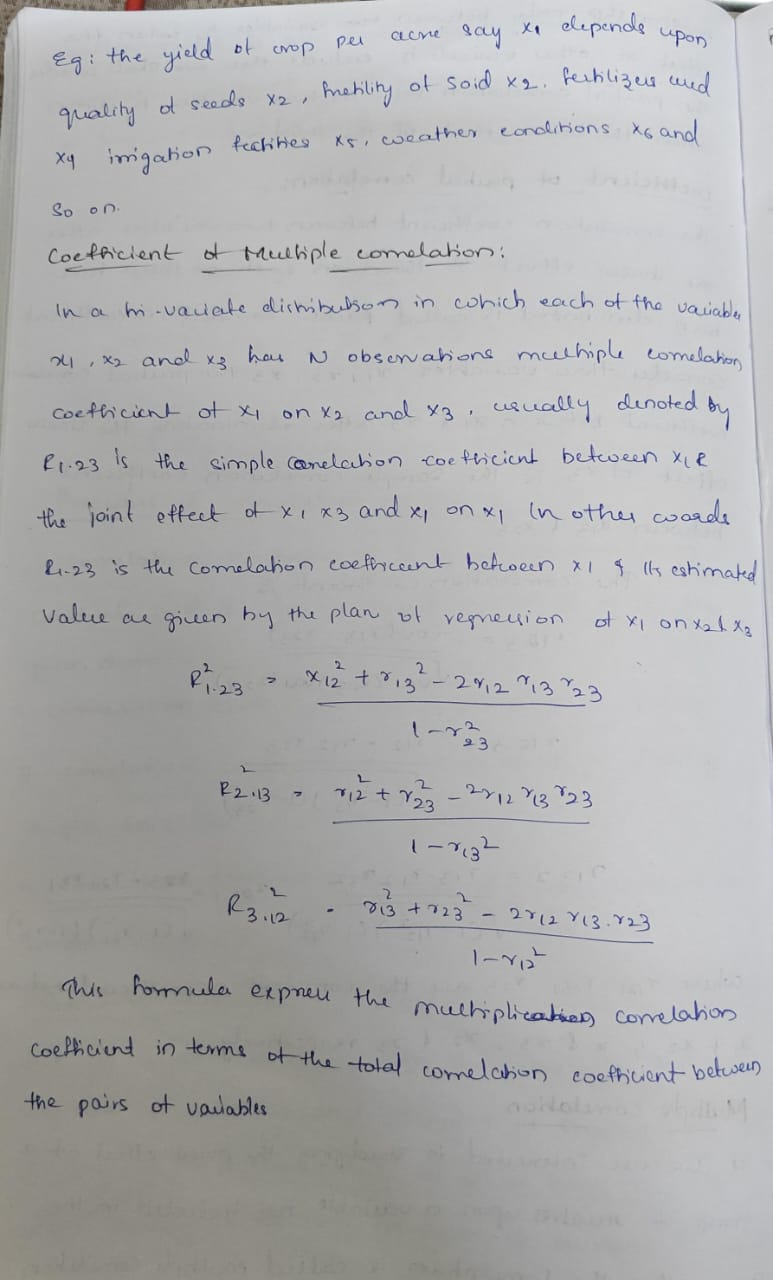 Eg: the yield of crop per acre say x1 depends upon
quality of seeds x2, fretility of soid x2. fertilizers used
x4 irrigation fecilities x5, weather conditions x6 and
so on.
Coefficient of Multiple correlation:
In a tri-variate distribution in which each of the variable
x1, x2 and x3 has N observations multiple correlation
coefficient of x1 on x2 and x3, usually denoted by
R1.23 is the simple correlation coefficient between x1 &
the joint effect of x1 x3 and x1 on x1 In other woards
R1.23 is the correlation coefficeent between x1 & its estimated
value as given by the plan of regression of x1 on x2 & x3
R²1.23 = x12² + r13² - 2r12 r13 r23
1 - r²23
R2.13² = r12² + r23² - 2r12 r13 r23
1 - r13²
R3.12² = r13² + r23² - 2r12 r13.r23
1 - r12²
This formula express the multiplication correlation
coefficient in terms of the total correlation coefficient between
the pairs of variables